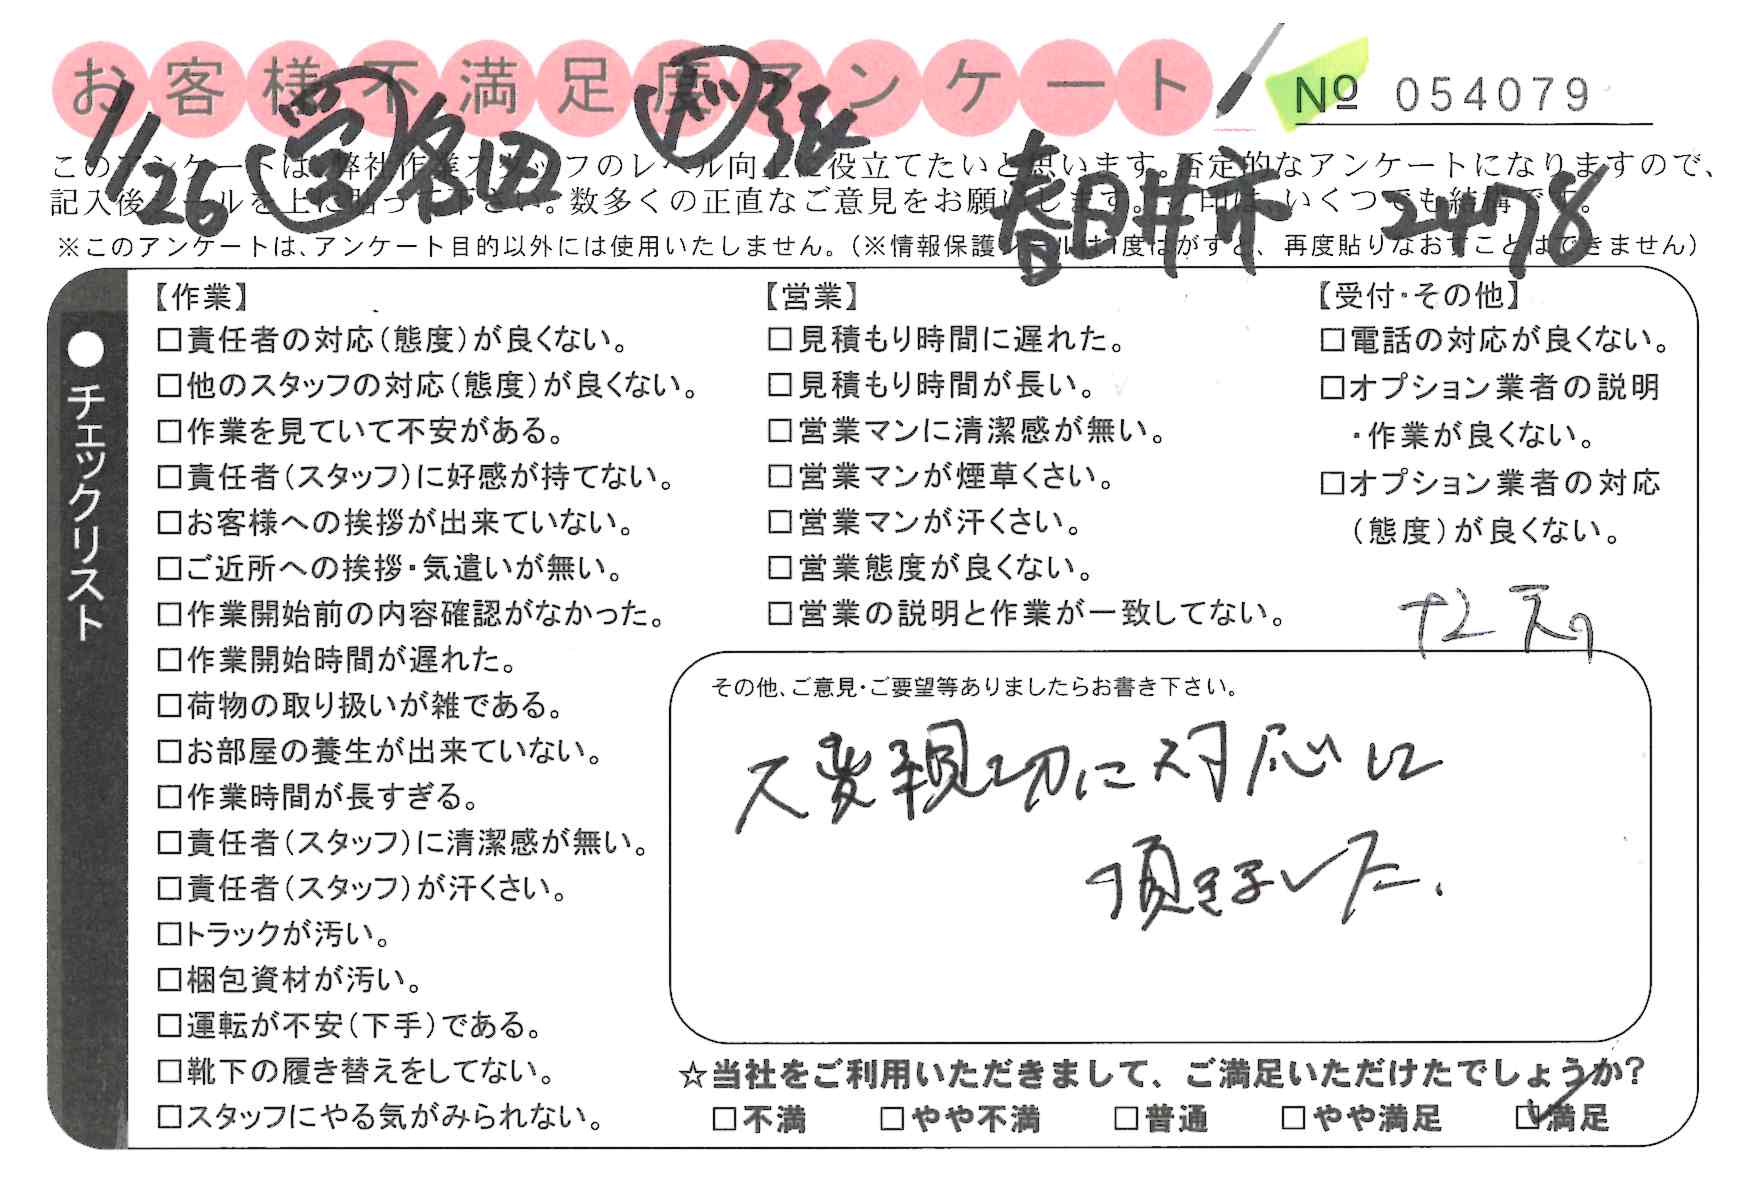 お客様不満足度アンケート
№ 054079
1/26 営 多田 ドツ 張
春日井市 2478
このアンケートは、弊社作業スタッフのレベル向上に役立てたいと思います。否定的なアンケートになりますので、
記入後シールを上に貼って下さい。数多くの正直なご意見をお願いします。✓印は、いくつでも結構です。
※このアンケートは、アンケート目的以外には使用いたしません。（※情報保護シールは1度はがすと、再度貼りなおすことはできません）
●チェックリスト
【作業】
□責任者の対応（態度）が良くない。
□他のスタッフの対応（態度）が良くない。
□作業を見ていて不安がある。
□責任者（スタッフ）に好感が持てない。
□お客様への挨拶が出来ていない。
□ご近所への挨拶・気遣いが無い。
□作業開始前の内容確認がなかった。
□作業開始時間が遅れた。
□荷物の取り扱いが雑である。
□お部屋の養生が出来ていない。
□作業時間が長すぎる。
□責任者（スタッフ）に清潔感が無い。
□責任者（スタッフ）が汗くさい。
□トラックが汚い。
□梱包資材が汚い。
□運転が不安（下手）である。
□靴下の履き替えをしてない。
□スタッフにやる気がみられない。
【営業】
□見積もり時間に遅れた。
□見積もり時間が長い。
□営業マンに清潔感が無い。
□営業マンが煙草くさい。
□営業マンが汗くさい。
□営業態度が良くない。
□営業の説明と作業が一致してない。
【受付・その他】
□電話の対応が良くない。
□オプション業者の説明
・作業が良くない。
□オプション業者の対応
（態度）が良くない。
その他、ご意見・ご要望等ありましたらお書き下さい。
大変親切に対応して
頂きました。
☆当社をご利用いただきまして、ご満足いただけたでしょうか？
□不満 □やや不満 □普通 □やや満足 ☑満足